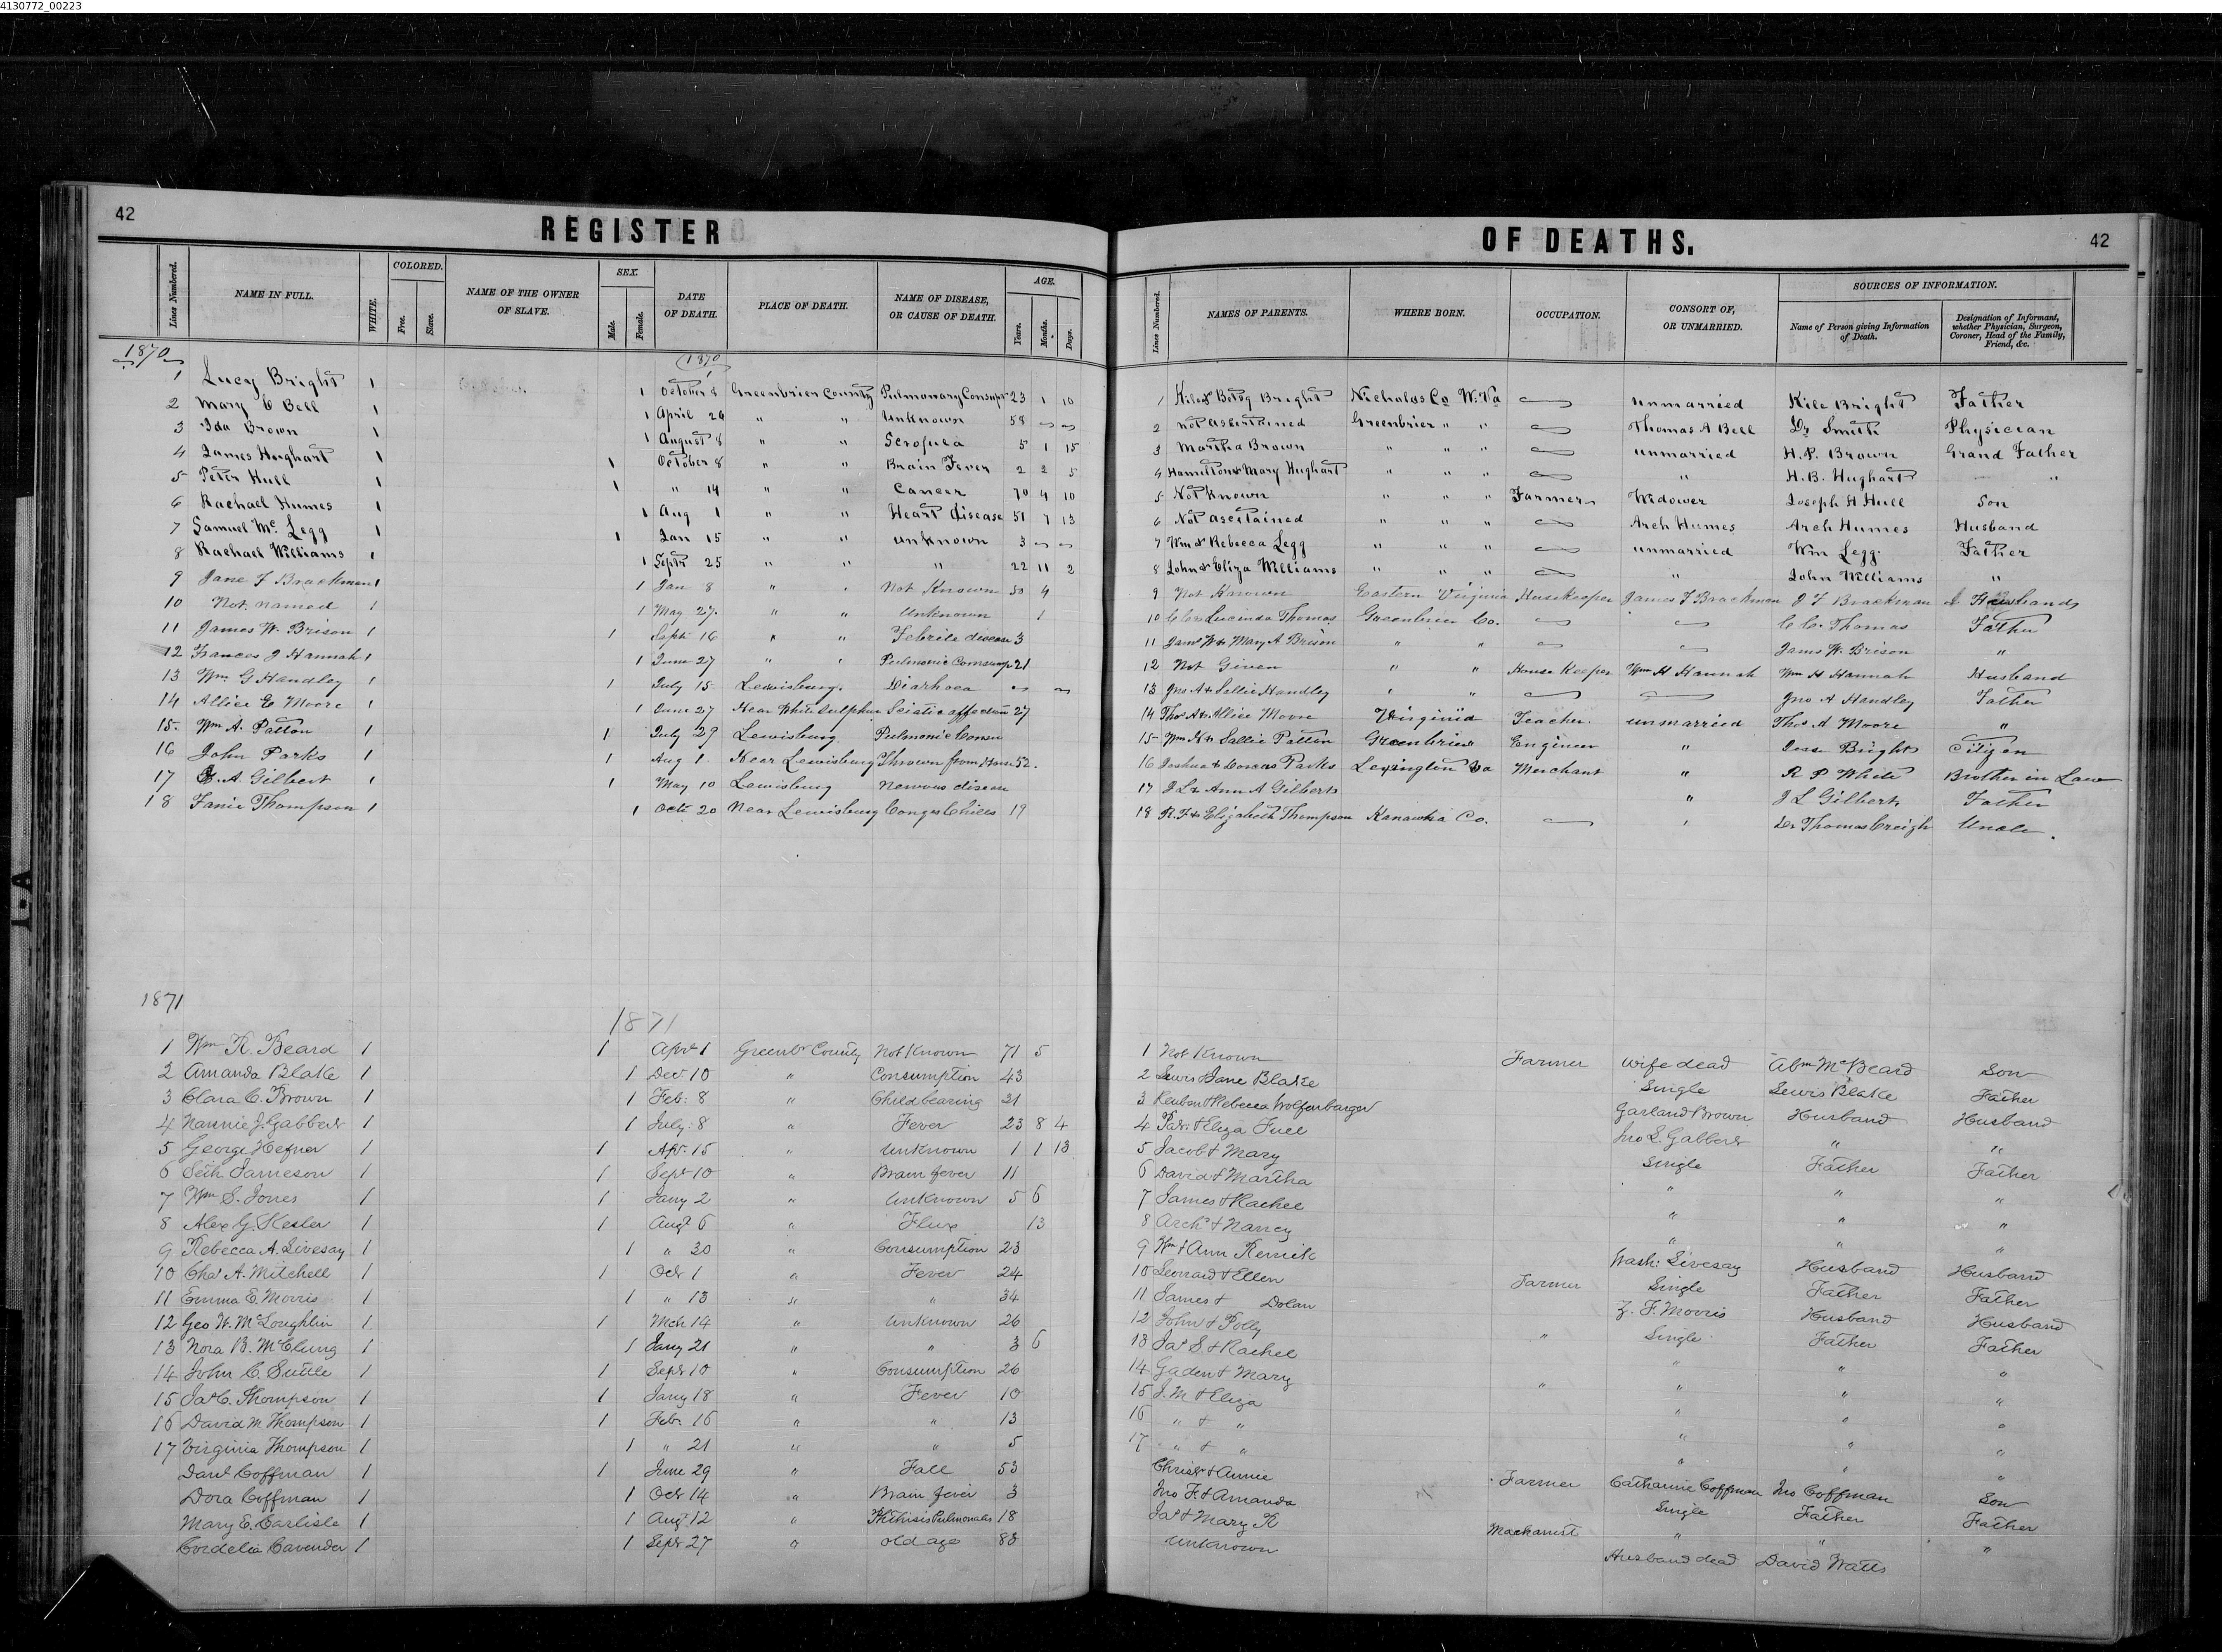 4130772_00223
42
REGISTER
OF DEATHS.
42
Lines Numbered. NAME IN FULL. WHITE. COLORED. Free. Slave. NAME OF THE OWNER OF SLAVE. SEX. Male. Female. DATE OF DEATH. PLACE OF DEATH. NAME OF DISEASE, OR CAUSE OF DEATH. AGE. Years. Months. Days.
Lines Numbered. NAMES OF PARENTS. WHERE BORN. OCCUPATION. CONSORT OF, OR UNMARRIED. SOURCES OF INFORMATION. Name of Person giving Information of Death. Designation of Informant, whether Physician, Surgeon, Coroner, Head of the Family, Friend, &c.
1870
1870
1 Lucy Bright 1 1 October 8 Greenbrier County Pulmonary Consump 23 1 10
2 Mary C Bell 1 1 April 24 " " Unknown 58
3 Ida Brown 1 1 August 8 " " Scrofula 5 1 15
4 James Hughart 1 1 October 8 " " Brain Fever 2 2 5
5 Peter Hull 1 1 " 14 " " Cancer 70 4 10
6 Rachael Humes 1 1 Aug 1 " " Heart disease 51 7 13
7 Samuel Mc Legg 1 1 Jan 15 " " unknown 3
8 Rachael Williams 1 1 Septr 25 " " " 22 11 2
9 Jane F Brackman 1 1 Jan 8 " " Not Known 50 4
10 Not named 1 1 May 27. " " Unknown 1
11 James W. Brison 1 1 Sept 16 " " Febrile disease 3
12 Frances J Hannah 1 1 June 27 " " Pulmonic Consump 21
13 Wm G Handley 1 1 July 15 Lewisburg. Diarhoea
14 Allice E Moore 1 1 June 27 Near White Sulphur Sciatic affection 27
15. Wm A. Patton 1 1 July 29 Lewisburg Pulmonic Consu
16 John Parks 1 1 Aug 1. Near Lewisburg Thrown from Horse 52.
17 A. Gilbert 1 1 May 10 Lewisburg Nervous disease
18 Fanie Thompson 1 1 Oct 20 Near Lewisburg Conges Chills 19
1 Kile & Betsy Bright Nicholas Co W. Va unmarried Kile Bright Father
2 not ascertained Greenbrier " " Thomas A Bell Dr Smith Physician
3 Martha Brown " " " unmarried H. P. Brown Grand Father
4 Hamilton & Mary Hughart " " " " H. B. Hughart "
5 Not Known " " " Farmer Widower Joseph H Hull Son
6 Not ascertained " " " Arch Humes Arch Humes Husband
7 Wm & Rebecca Legg " " " unmarried Wm Legg. Father
8 John & Eliza Williams " " " " John Williams "
9 Not Known Eastern Virginia Housekeeper James F Brackman J F Brackman Husband
10 C. C. & Lucinda Thomas Greenbrier Co. C. C. Thomas Father
11 James W & Mary A Brison " " James W. Brison "
12 Not Given " " House Keeper Wm H Hannah Wm H Hannah Husband
13 Jno A & Sallie Handley " " Jno A Handley Father
14 Thos A & Allice Moore Virginia Teacher. unmarried Thos A Moore "
15 Wm H & Sallie Patton Greenbrier Engineer " Bright Citizen
16 Joshua & Dorcas Parks Lexington Va Merchant " R P White Brother in Law
17 J L & Ann A Gilbert " J L Gilbert Father
18 R. F & Elizabeth Thompson Kanawha Co. " Dr Thomas Creigh Uncle.
1871
1871
1 Wm K. Beard 1 1 Apr 1 Greenbr County Not Known 71 5
2 Amanda Blake 1 1 Dec 10 " Consumption 43
3 Clara C. Brown 1 1 Feb: 8 " Childbearing 21
4 Nannie J. Gabbert 1 1 July: 8 " Fever 23 8 4
5 George Hefner 1 1 Apr. 15 " Unknown 1 1 13
6 Seth Jameson 1 1 Sept 10 " Brain fever 11
7 Wm S. Jones 1 1 Jany 2 " Unknown 5 6
8 Alex G. Kesler 1 1 Augt 6 " Flux 13
9 Rebecca A. Livesay 1 1 " 30 " Consumption 23
10 Chas A. Mitchell 1 1 Oct 1 " Fever 24
11 Emma E. Morris 1 1 " 13 " " 34
12 Geo W. McLoughlin 1 1 Mch 14 " Unknown 26
13 Nora B. McClung 1 1 Jany 21 " " 3 6
14 John C. Suttle 1 1 Sept 10 " Consumption 26
15 Jas C. Thompson 1 1 Jany 18 " Fever 10
16 David M. Thompson 1 1 Feb. 16 " " 13
17 Virginia Thompson 1 1 " 21 " " 5
Danl Coffman 1 1 June 29 " Fall 53
Dora Coffman 1 1 Oct 14 " Brain fever 3
Mary E. Carlisle 1 1 Augt 12 " Phthisis Pulmonalis 18
Cordelia Cavender 1 1 Sept 27 " old age 83
1 Not Known Farmer Wife dead Abm Mc Beard Son
2 Lewis & Jane Blake Single Lewis Blake Father
3 Reuben & Rebecca Wolfenbarger Garland Brown Husband Husband
4 Patr: & Eliza Tuel Jno L. Gabbert " "
5 Jacob & Mary Single Father Father
6 David & Martha " " "
7 James & Rachel " " "
8 Archd & Nancy " " "
9 Wm & Ann Renick Wash: Livesay Husband Husband
10 Leonard & Ellen Farmer Single Father Father
11 James & Dolan Z. F. Morris Husband Husband
12 John & Polly " Single Father Father
13 Jas S. & Rachel " " "
14 Gaden & Mary " " " "
15 J. M & Eliza " " "
16 " & " " " "
17 " & " " " "
Christ & Annie Farmer Catharine Coffman Jno Coffman Son
Jno F. & Amanda Single Father Father
Jas & Mary R Machanist " " "
Unknown Husband dead David Watts